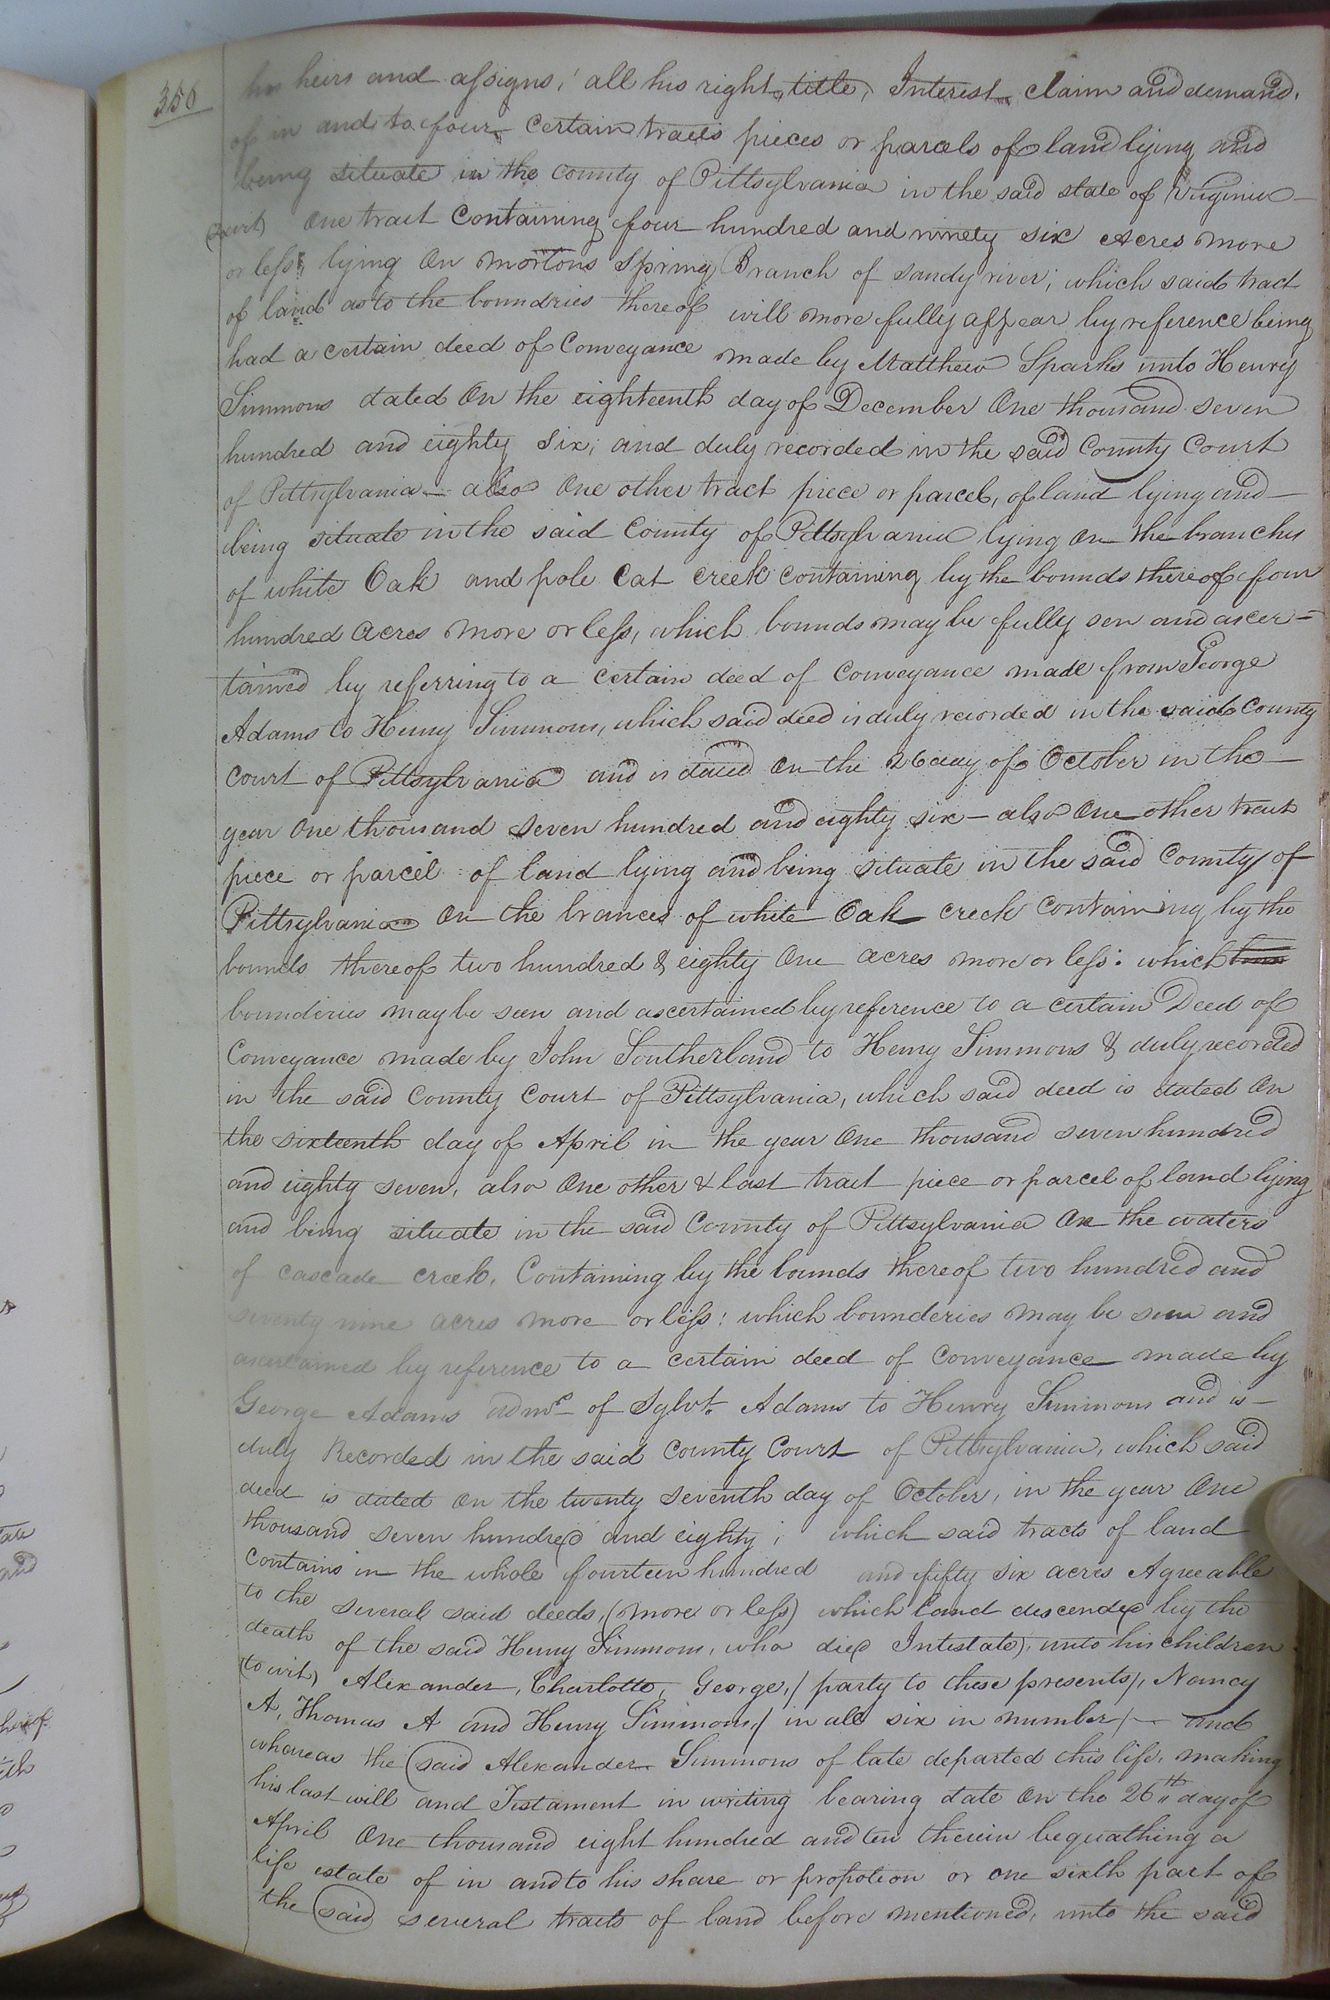 350
his heirs and assigns, all his right, title, Interest, claim and demand,
of in and to four certain tracts pieces or parcels of land lying and
being situate in the county of Pittsylvania in the said state of Virginia
(towit) One tract Containing four hundred and ninety six Acres more
or less, lying On mortons Spring Branch of sandy river; which said tract
of land as to the boundries thereof will more fully appear by reference being
had a certain deed of Conveyance made by Matthew Sparks unto Henry
Simmons dated On the eighteenth day of December One thousand seven
hundred and eighty six; and duly recorded in the said County Court
of Pittsylvania - also One other tract piece or parcel, of land lying and
being situate in the said County of Pittsylvania lying On the branches
of white Oak and pole Cat creek containing by the bounds thereof four
hundred Acres more or less, which bounds may be fully sen and ascer=
tained by referring to a certain deed of Conveyance made from George
Adams to Henry Simmons, which said deed is duly recorded in the said County
Court of Pittsylvania and is dated On the 26 day of October in the
year One thousand seven hundred and eighty six - also One other tract
piece or parcel of land lying and being situate in the said County of
Pittsylvania On the brances of white Oak creek containing by the
bounds thereof two hundred & eighty One acres more or less: which
bounderies may be seen and ascertained by reference to a certain Deed of
Conveyance made by John Southerland to Henry Simmons & duly recorded
in the said County Court of Pittsylvania, which said deed is dated On
the sixteenth day of April in the year One thousand seven hundred
and eighty seven, also One other & last tract piece or parcel of land lying
and being situate in the said County of Pittsylvania On the waters
of cascade creek, Containing by the bounds thereof two hundred and
seventy nine acres more or less: which bounderies may be seen and
ascertained by reference to a certain deed of Conveyance made by
George Adams admr of Sylvt. Adams to Henry Simmons and is
duly Recorded in the said County Court of Pittsylvania, which said
deed is dated On the twenty seventh day of October, in the year One
thousand seven hundred and eighty; which said tracts of land
contains in the whole fourteen hundred and fifty six acres Agreeable
to the several said deeds, (more or less) which land descended by the
death of the said Henry Simmons, who died Intestate, unto his children
(to wit) Alexander, Charlotte, George, / party to these presents /, Nancy
A, Thomas A and Henry Simmons, / in all six in number / - and
whereas the said Alexander Simmons of late departed this life, making
his last will and Testament in writing bearing date On the 26th day of
April One thousand eight hundred and ten therein bequathing a
life estate of in and to his share or propotion or one sixth part of
the said several tracts of land before mentioned, unto the said